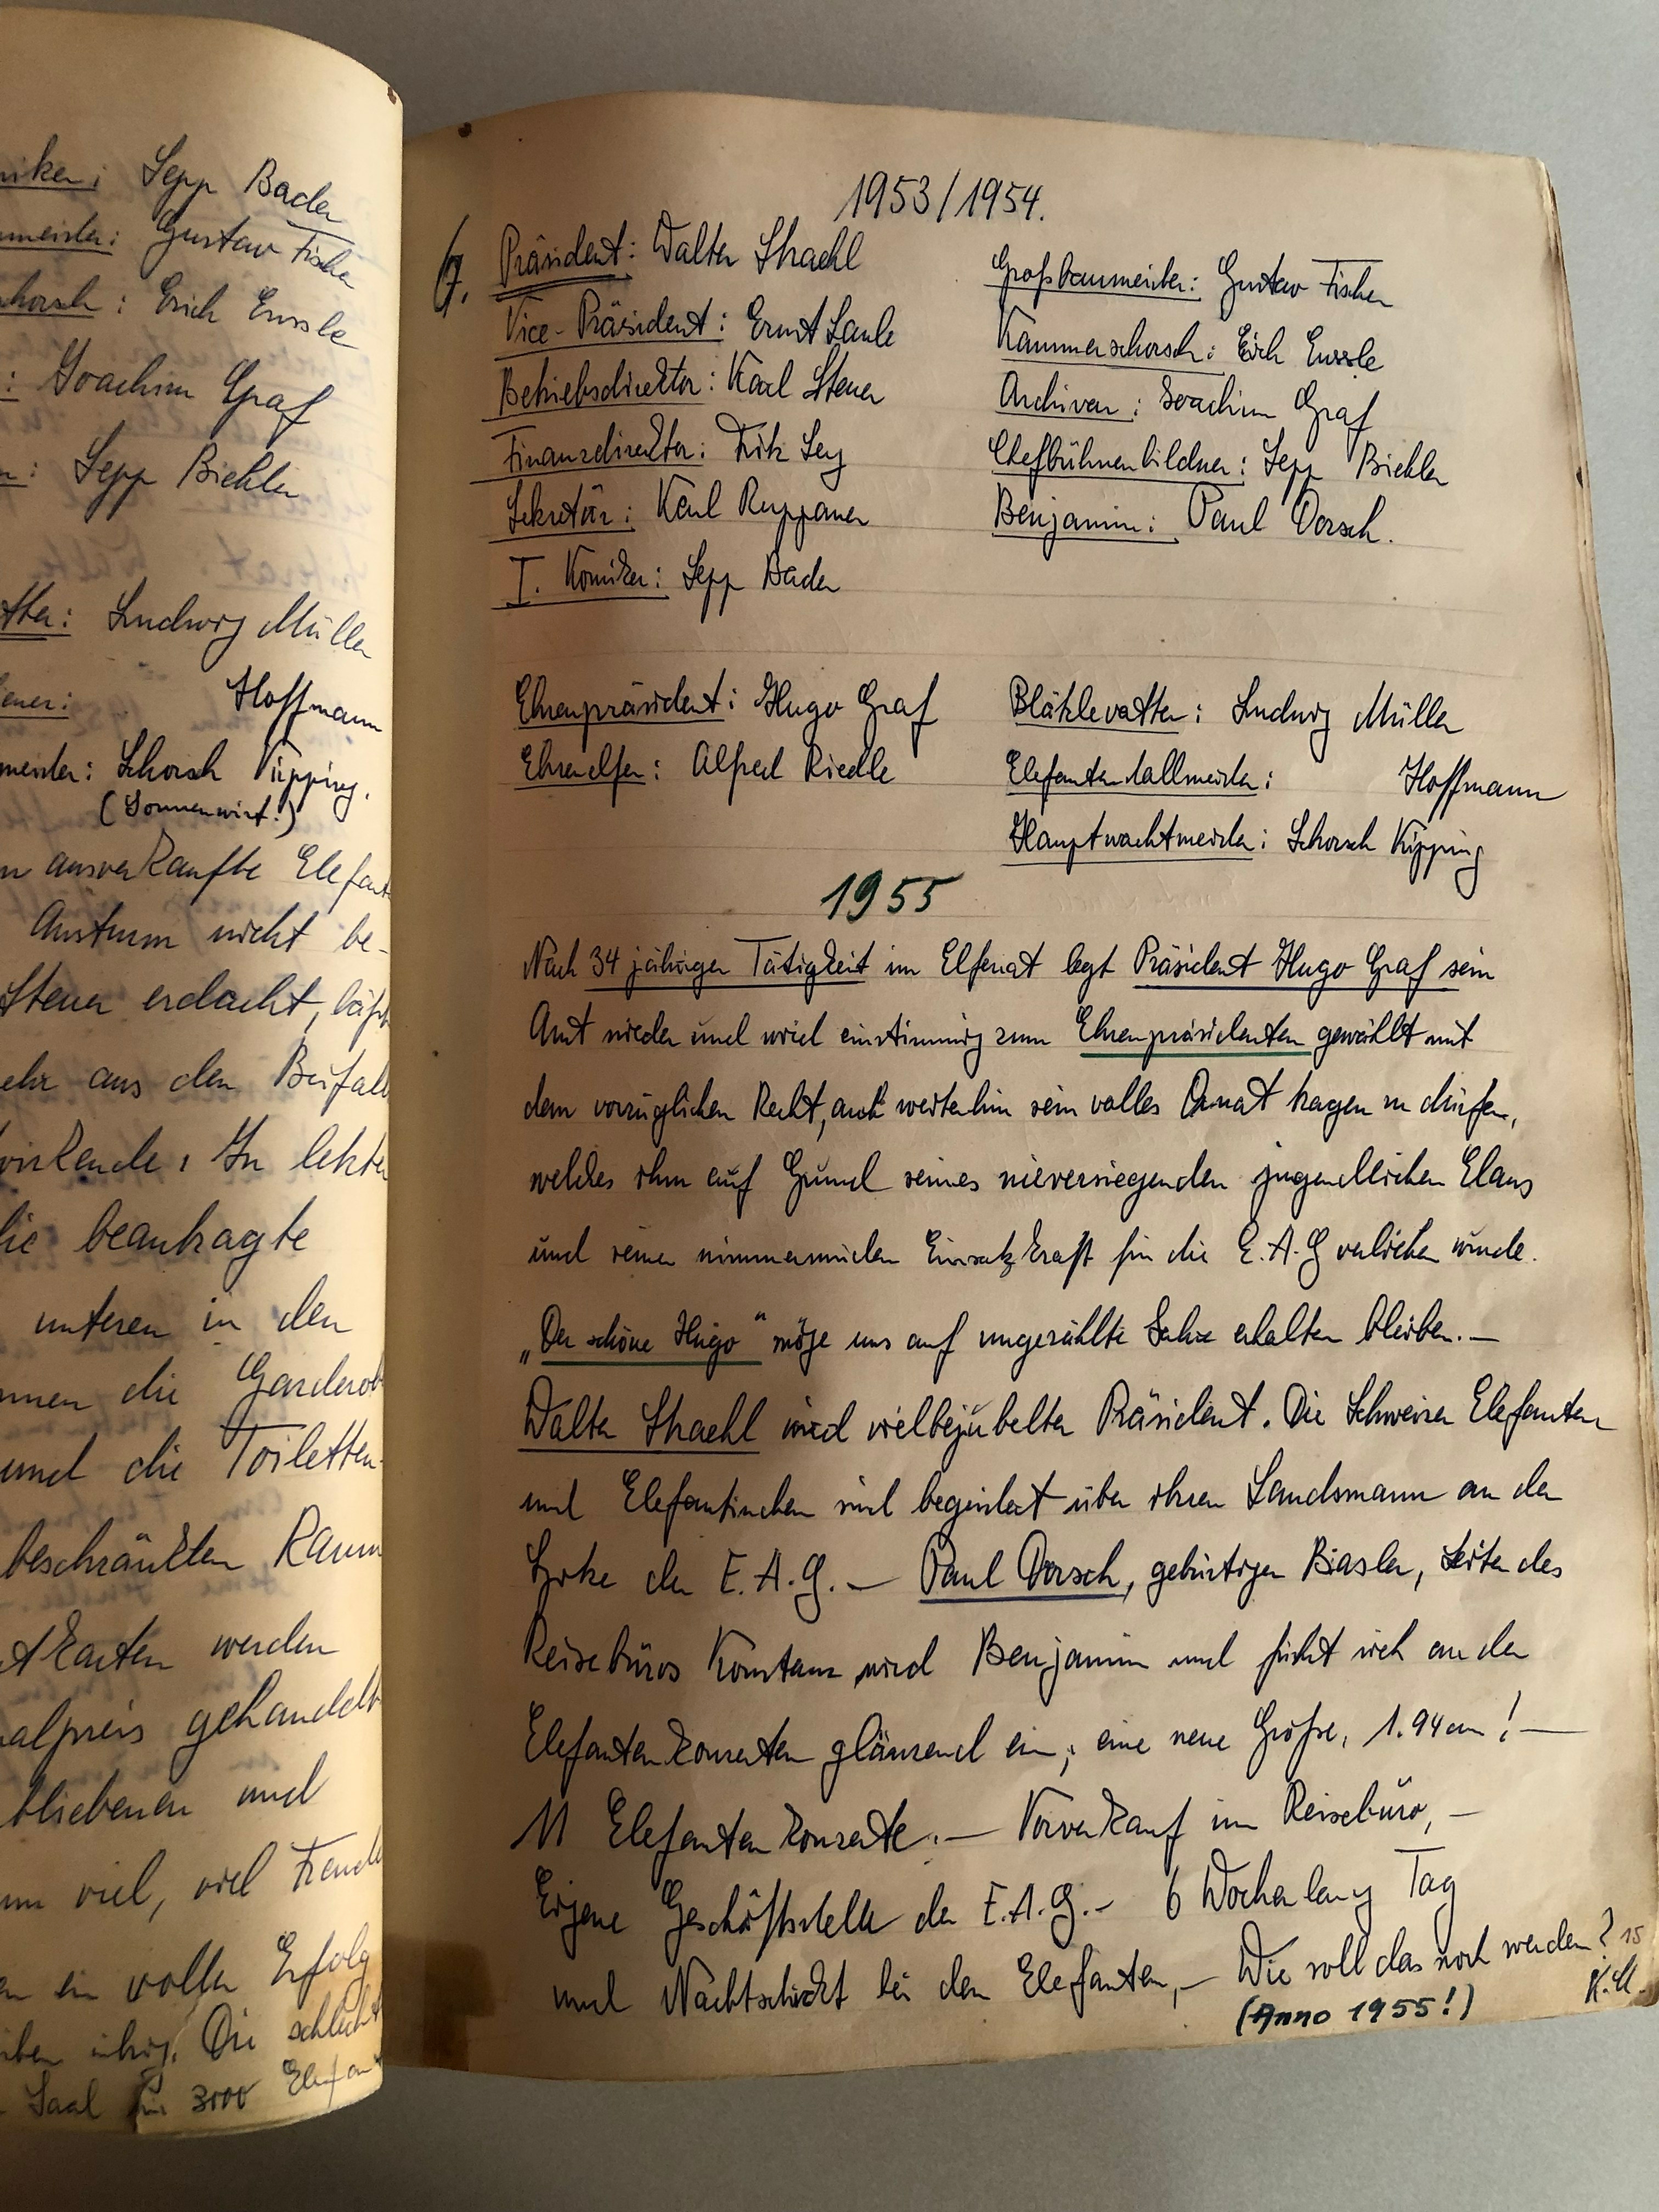 Sepp Bader
Gustav Fischer
Erich Enssle
Joachim Graf
Sepp Biehler
Ludwig Müller
Hoffmann
Schorsch Kipping.
(Sonnenwirt!)
ausverkaufte Elefant
Ansturm nicht be-
Steuer erdacht,
aus den Büfall
In letzter
beantragte
unteren in den
die Garderob
und die Toiletten-
beschränkten Raum
werden
gehandelt
bliebenen und
viel, viel Freude
ein voller Erfolg
Die schlicht
Saal für 3000 Elefan
1953/1954.
7. Präsident: Walter Straehl
Vice-Präsident: Ernst Laule
Betriebsdirektor: Karl Steuer
Finanzdirektor: Fritz Ley
Sekretär: Karl Ruppaner
I. Komiker: Sepp Bader
Großbaumeister: Gustav Fischer
Kammerschorsch: Erich Enssle
Archivar: Joachim Graf
Chefbühnenbildner: Sepp Biehler
Benjamin: Paul Dorsch.
Ehrenpräsident: Hugo Graf
Ehrenelfer: Alfred Riedle
Blätzlevatter: Ludwig Müller
Elefantenstallmeister: Hoffmann
Hauptwachtmeister: Schorsch Kipping
1955
Nach 34 jähriger Tätigkeit im Elferrat legt Präsident Hugo Graf sein
Amt nieder und wird einstimmig zum Ehrenpräsidenten gewählt mit
dem vorzüglichen Recht, auch weiterhin sein volles Ornat tragen zu dürfen,
welches ihm auf Grund seines nieversiegenden jugendlichen Elans
und seiner nimmermüden Einsatzkraft für die E.A.G verliehen wurde.
„Der schöne Hugo" möge uns auf ungezählte Jahre erhalten bleiben.—
Walter Straehl wird vielbejubelter Präsident. Die Schweizer Elefanten
und Elefantinchen sind begeistert über ihren Landsmann an der
Spitze der E.A.G.— Paul Dorsch, gebürtiger Basler, Leiter des
Reisebüros Konstanz wird Benjamin und führt sich an den
Elefantenkonzerten glänzend ein; eine neue Größe, 1.94 cm!—
11 Elefantenkonzerte.— Vorverkauf im Reisebüro,—
Eigene Geschäftsstelle der E.A.G.— 6 Wochen lang Tag
und Nachtschicht bei den Elefanten,— Wie soll das noch werden? 15
(Anno 1955!) K.St.